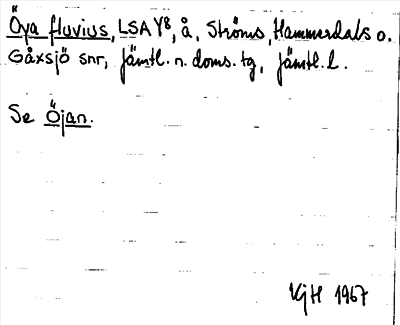 Öya fluvius, LSA Y8, å, Ströms, Hammerdals o.
Gåxsjö snr, Jämtl. n. doms. tg, Jämtl. l.
Se Öjan.
KjH 1967